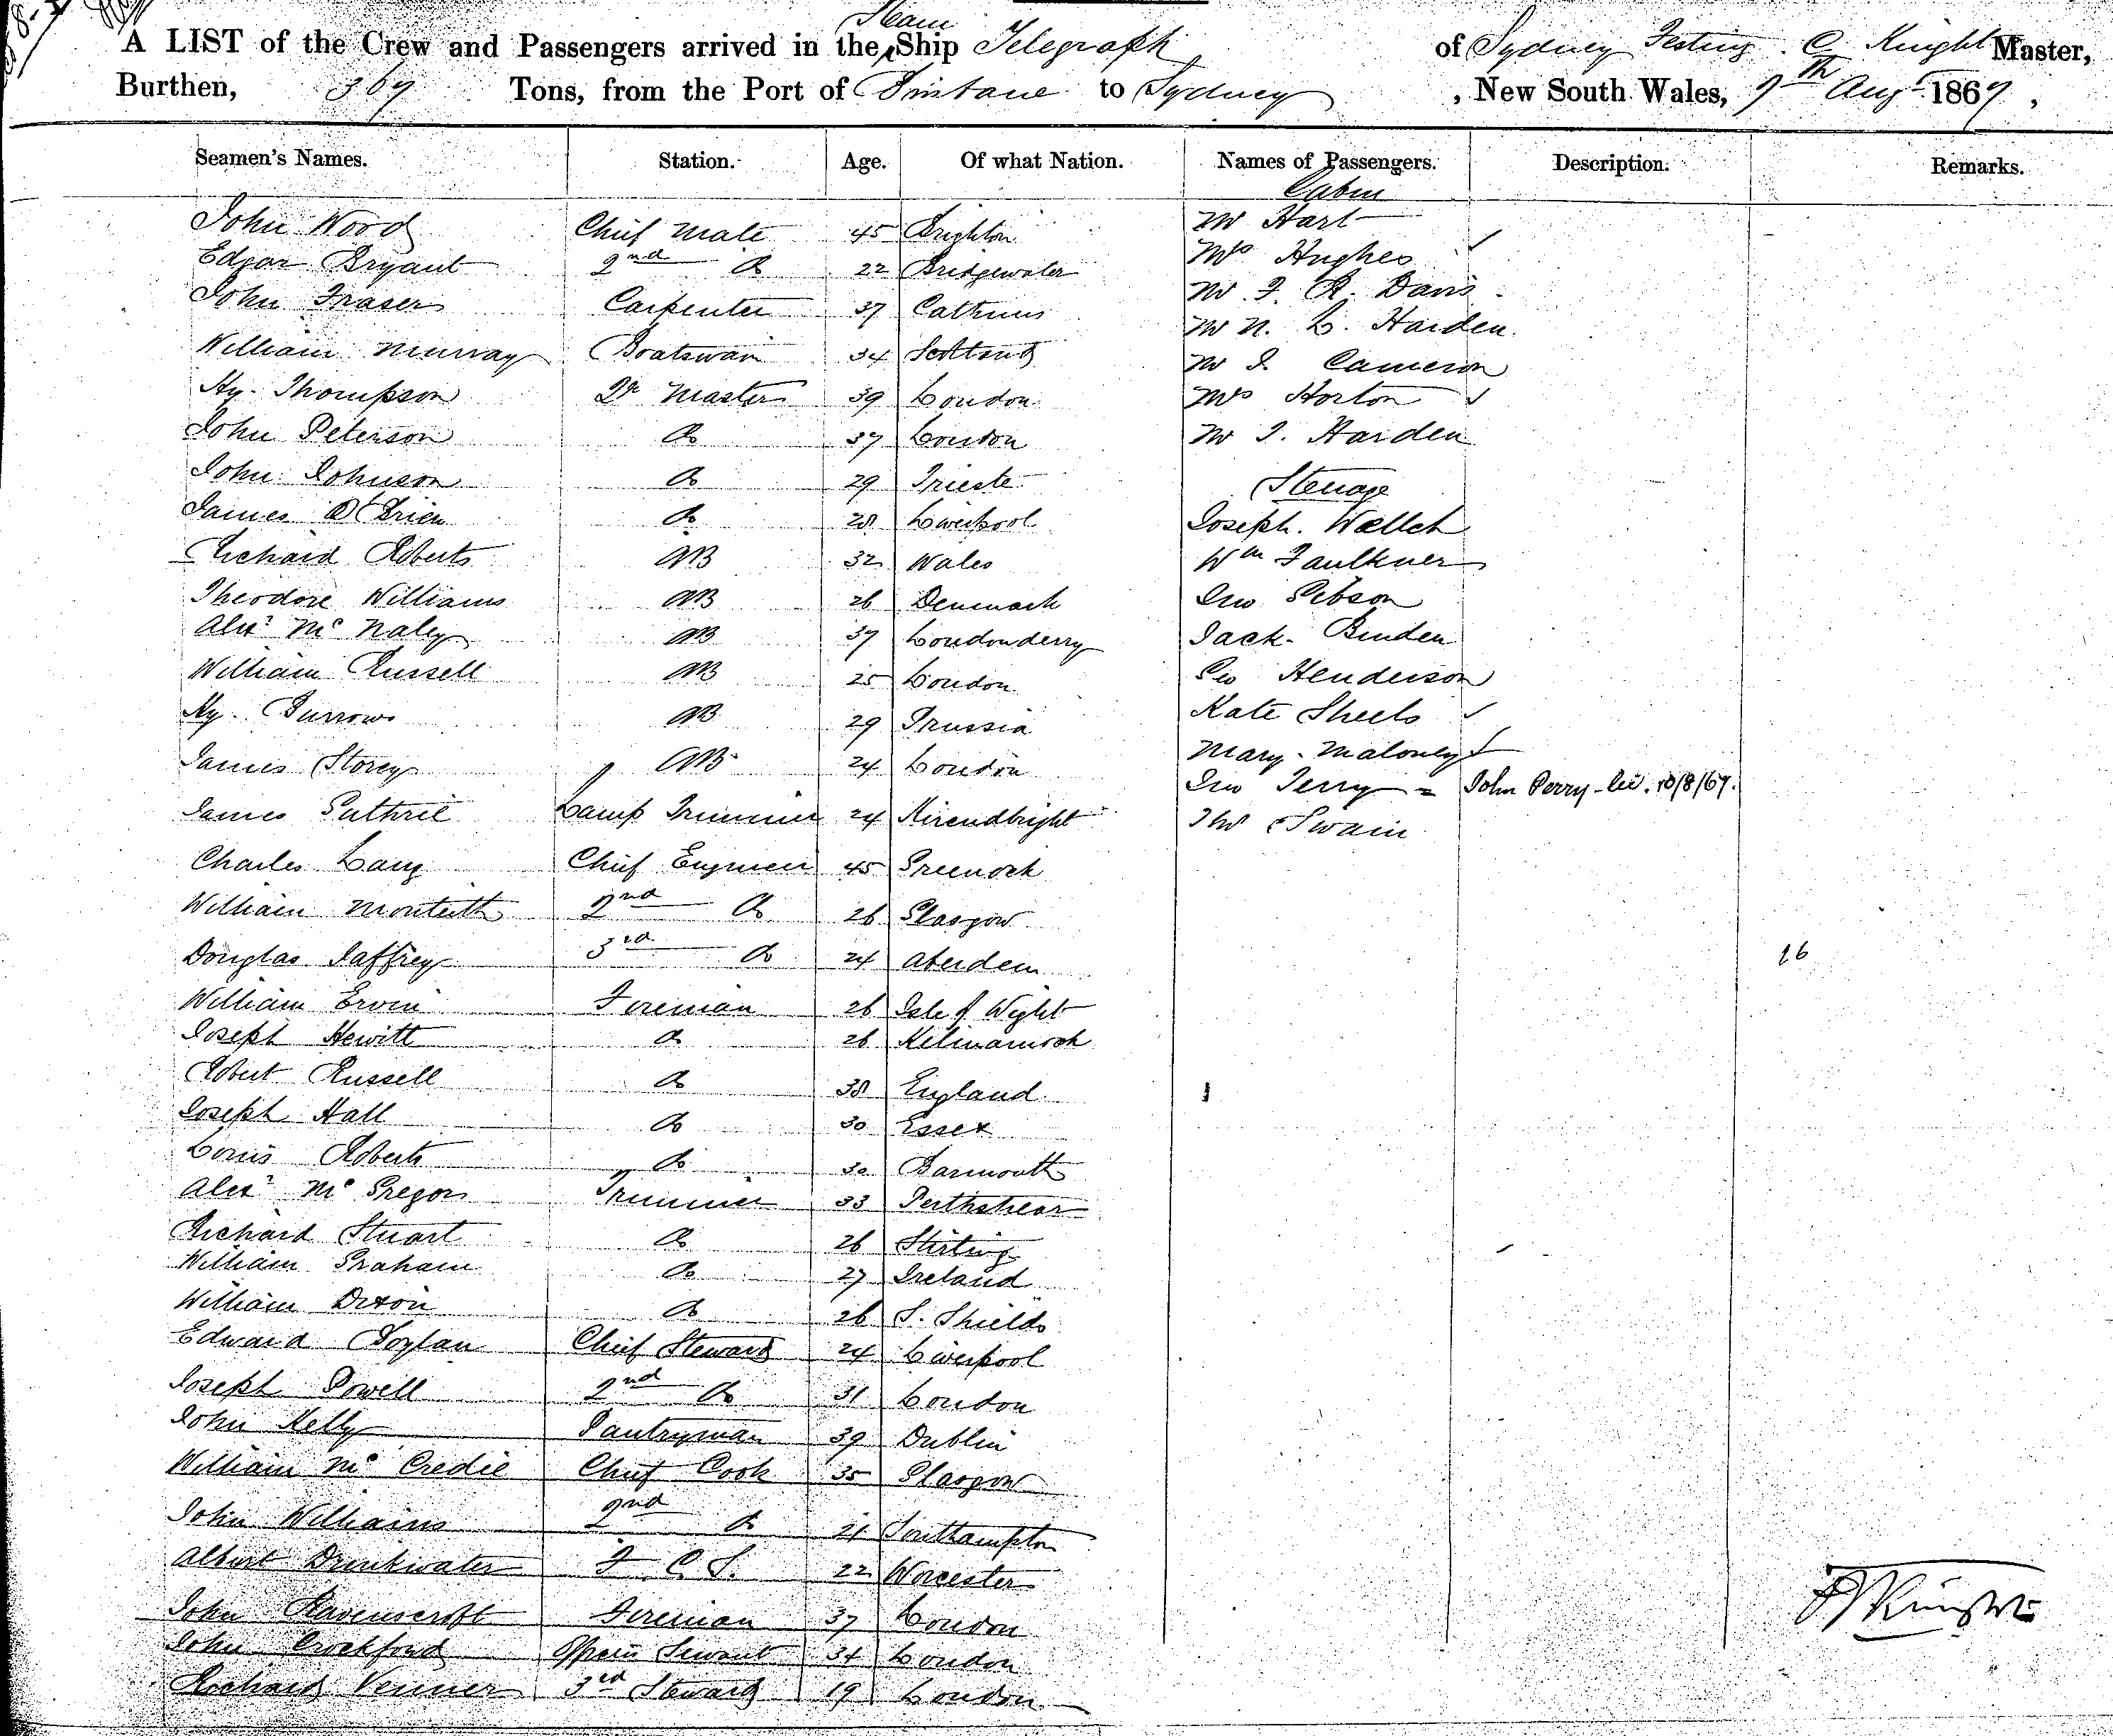 A LIST of the Crew and Passengers arrived in the Steam Ship Telegraph of Sydney C Knight Master,
Burthen, 369 Tons, from the Port of to Sydney, New South Wales, 9th Augt 1869,
Seamen's Names. Station. Age. Of what Nation. Names of Passengers. Description. Remarks.
Cabin
John Wood Chief Mate 45 Brighton Mr Hart
Edgar Bryant 2nd Do 22 Bridgewater Mrs Hughes ✓
John Fraser Carpenter 37 Mr F. R. Davis
William Murray Boatswain 34 Scotland Mr N. L. Harden
Hy. Thompson Qr Master 39 London Mr J Cameron
John Peterson Do 37 London Mrs Horton ✓
John Johnson Do 29 Trieste Mr J. Harden
James O'Brien Do 28 Liverpool Steerage
Richard Roberts AB 32 Wales Joseph. Wallet
Theodore Williams AB 26 Denmark Wm Faulkner
Alexr Mc Naley AB 37 Londonderry Jno Gibson
William Russell AB 25 London Jack. Binden
Hy. Burrows AB 29 Prussia Geo Henderson
James Storey AB 24 London Kate Sheels ✓
James Guthrie Lamp Trimmer 24 Kircudbright Mary. Maloney ✓
Charles Lang Chief Engineer 45 Greenock Jno Perry = John Perry 10/8/69.
William Monteith 2nd Do 26 Glasgow Thos Swain
Douglas Jaffrey 3rd Do 24 Aberdeen 16
William Ervin Fireman 26 Isle of Wight
Joseph Hewitt Do 26 Kilmarnock
Robert Russell Do 38 England
Joseph Hall Do 30 Essex
Louis Roberts Do 30 Barmouth
Alexr Mc Gregor Trimmer 33 Perthshear
Richard Stuart Do 26 Stirling
William Graham Do 27 Ireland
William Dixon Do 26 S. Shields
Edward Boylan Chief Steward 24 Liverpool
Joseph Powell 2nd Do 31 London
John Kelly Pantryman 39 Dublin
William Mc Credie Chief Cook 35 Glasgow
John Williams 2nd Do 21 Southampton
Albert Drinkwater F C S. 22 Worcester
John Ravenscroft Fireman 37 London
John Crockford Servant 34 London
Richard Venner 3rd Steward 19 London